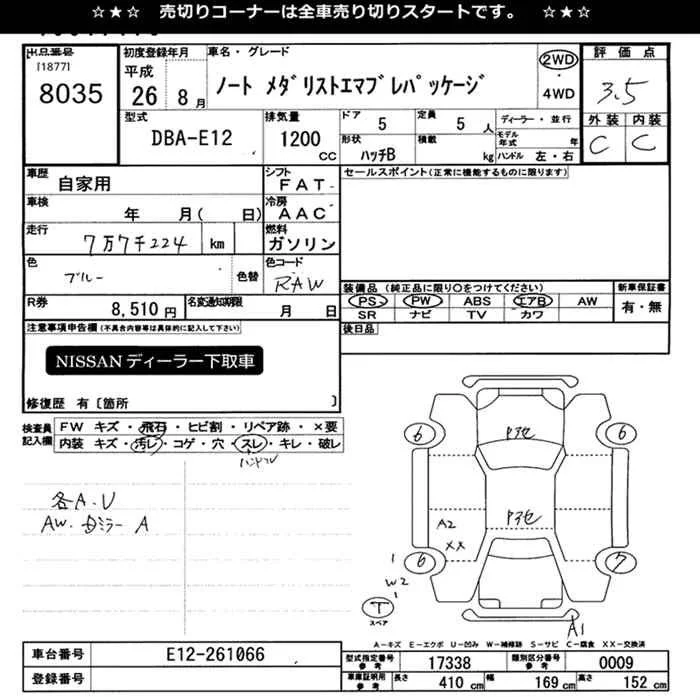 ☆★☆ 売切りコーナーは全車売り切りスタートです。 ☆★☆
出品番号
[1877]
8035
初度登録年月
平成
26 8月
車名・グレード
ノート メダリストエマブレパッケージ
2WD
4WD
評価点
3.5
外装 内装
C C
型式
DBA-E12
排気量
1200
cc
ドア
5
定員
5人
形状
ハッチB
積載
kg
ディーラー・並行
モデル年式 年
ハンドル 左・右
車歴
自家用
シフト
FAT
車検
年 月( 日)
冷房
AAC
走行
7万7千224 km
燃料
ガソリン
色
ブルー
色替
色コード
RAW
R券
8,510円
名変通知期限
月 日
セールスポイント(正常に機能するものに限ります)
装備品(純正品に限り○をつけてください)
PS PW ABS エアB AW
SR ナビ TV カワ
新車保証書
有・無
後日品
注意事項申告欄(不具合内容等は具体的に記入して下さい)
NISSANディーラー下取車
修復歴 有〔箇所 〕
検査員記入欄
FW キズ・飛石・ヒビ割・リペア跡・×要
内装 キズ・汚レ・コゲ・穴・スレ・キレ・破レ
ハンドル
各A.U
AW.
ミラー A
6 6
6 7
A2
XX
1
W2
T
スペア
A1
A-キズ E-エクボ U-凹み W-補修跡 S-サビ C-腐食 XX-交換済
車台番号
E12-261066
登録番号
型式指定番号
参考
17338
類別区分番号
参考
0009
車庫証明用
参考
長さ
410 cm
幅
169 cm
高さ
152 cm